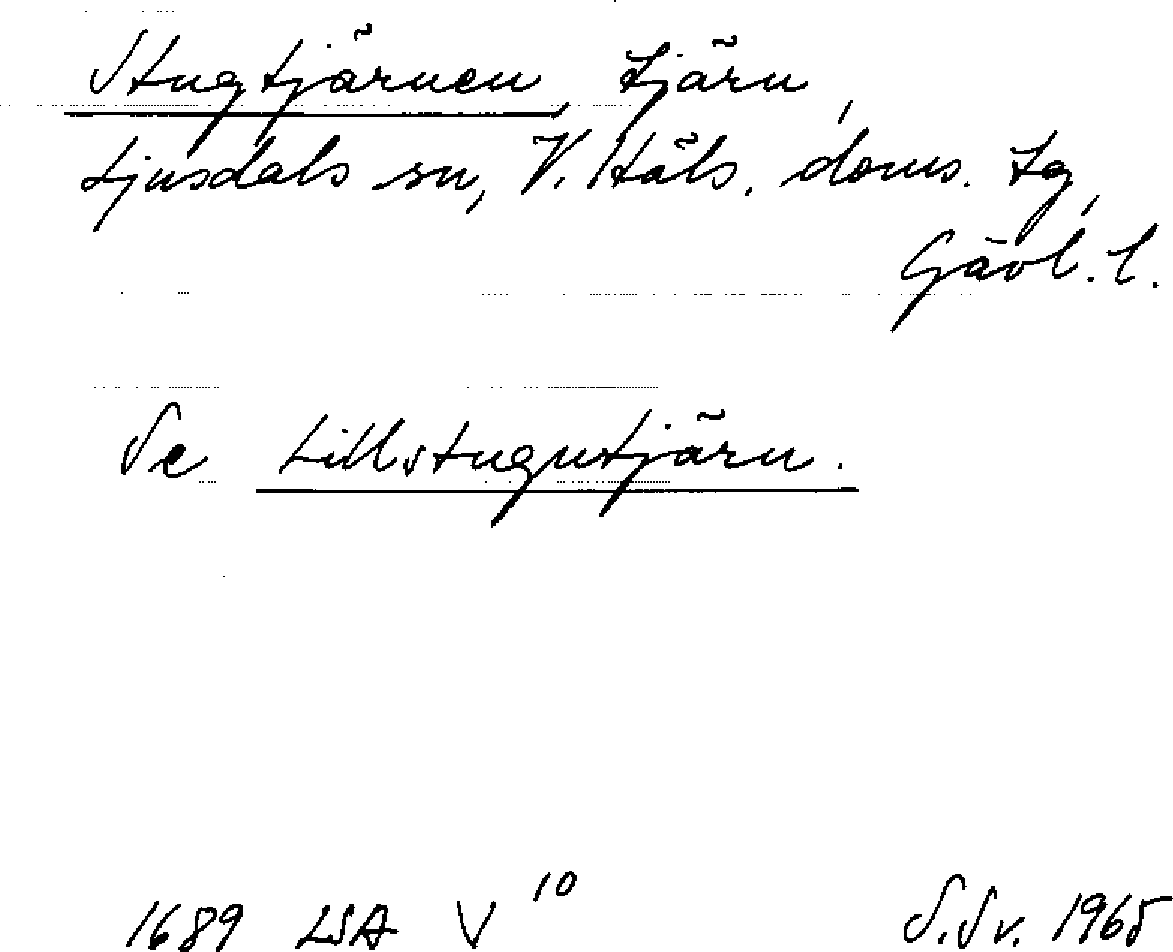 Stugtjärnen, tjärn,
Ljusdals sn, V. Häls. doms. tg,
Gävl. l.
Se Lillstugutjärn.
1689 LSA V 10
S. Sv. 1965